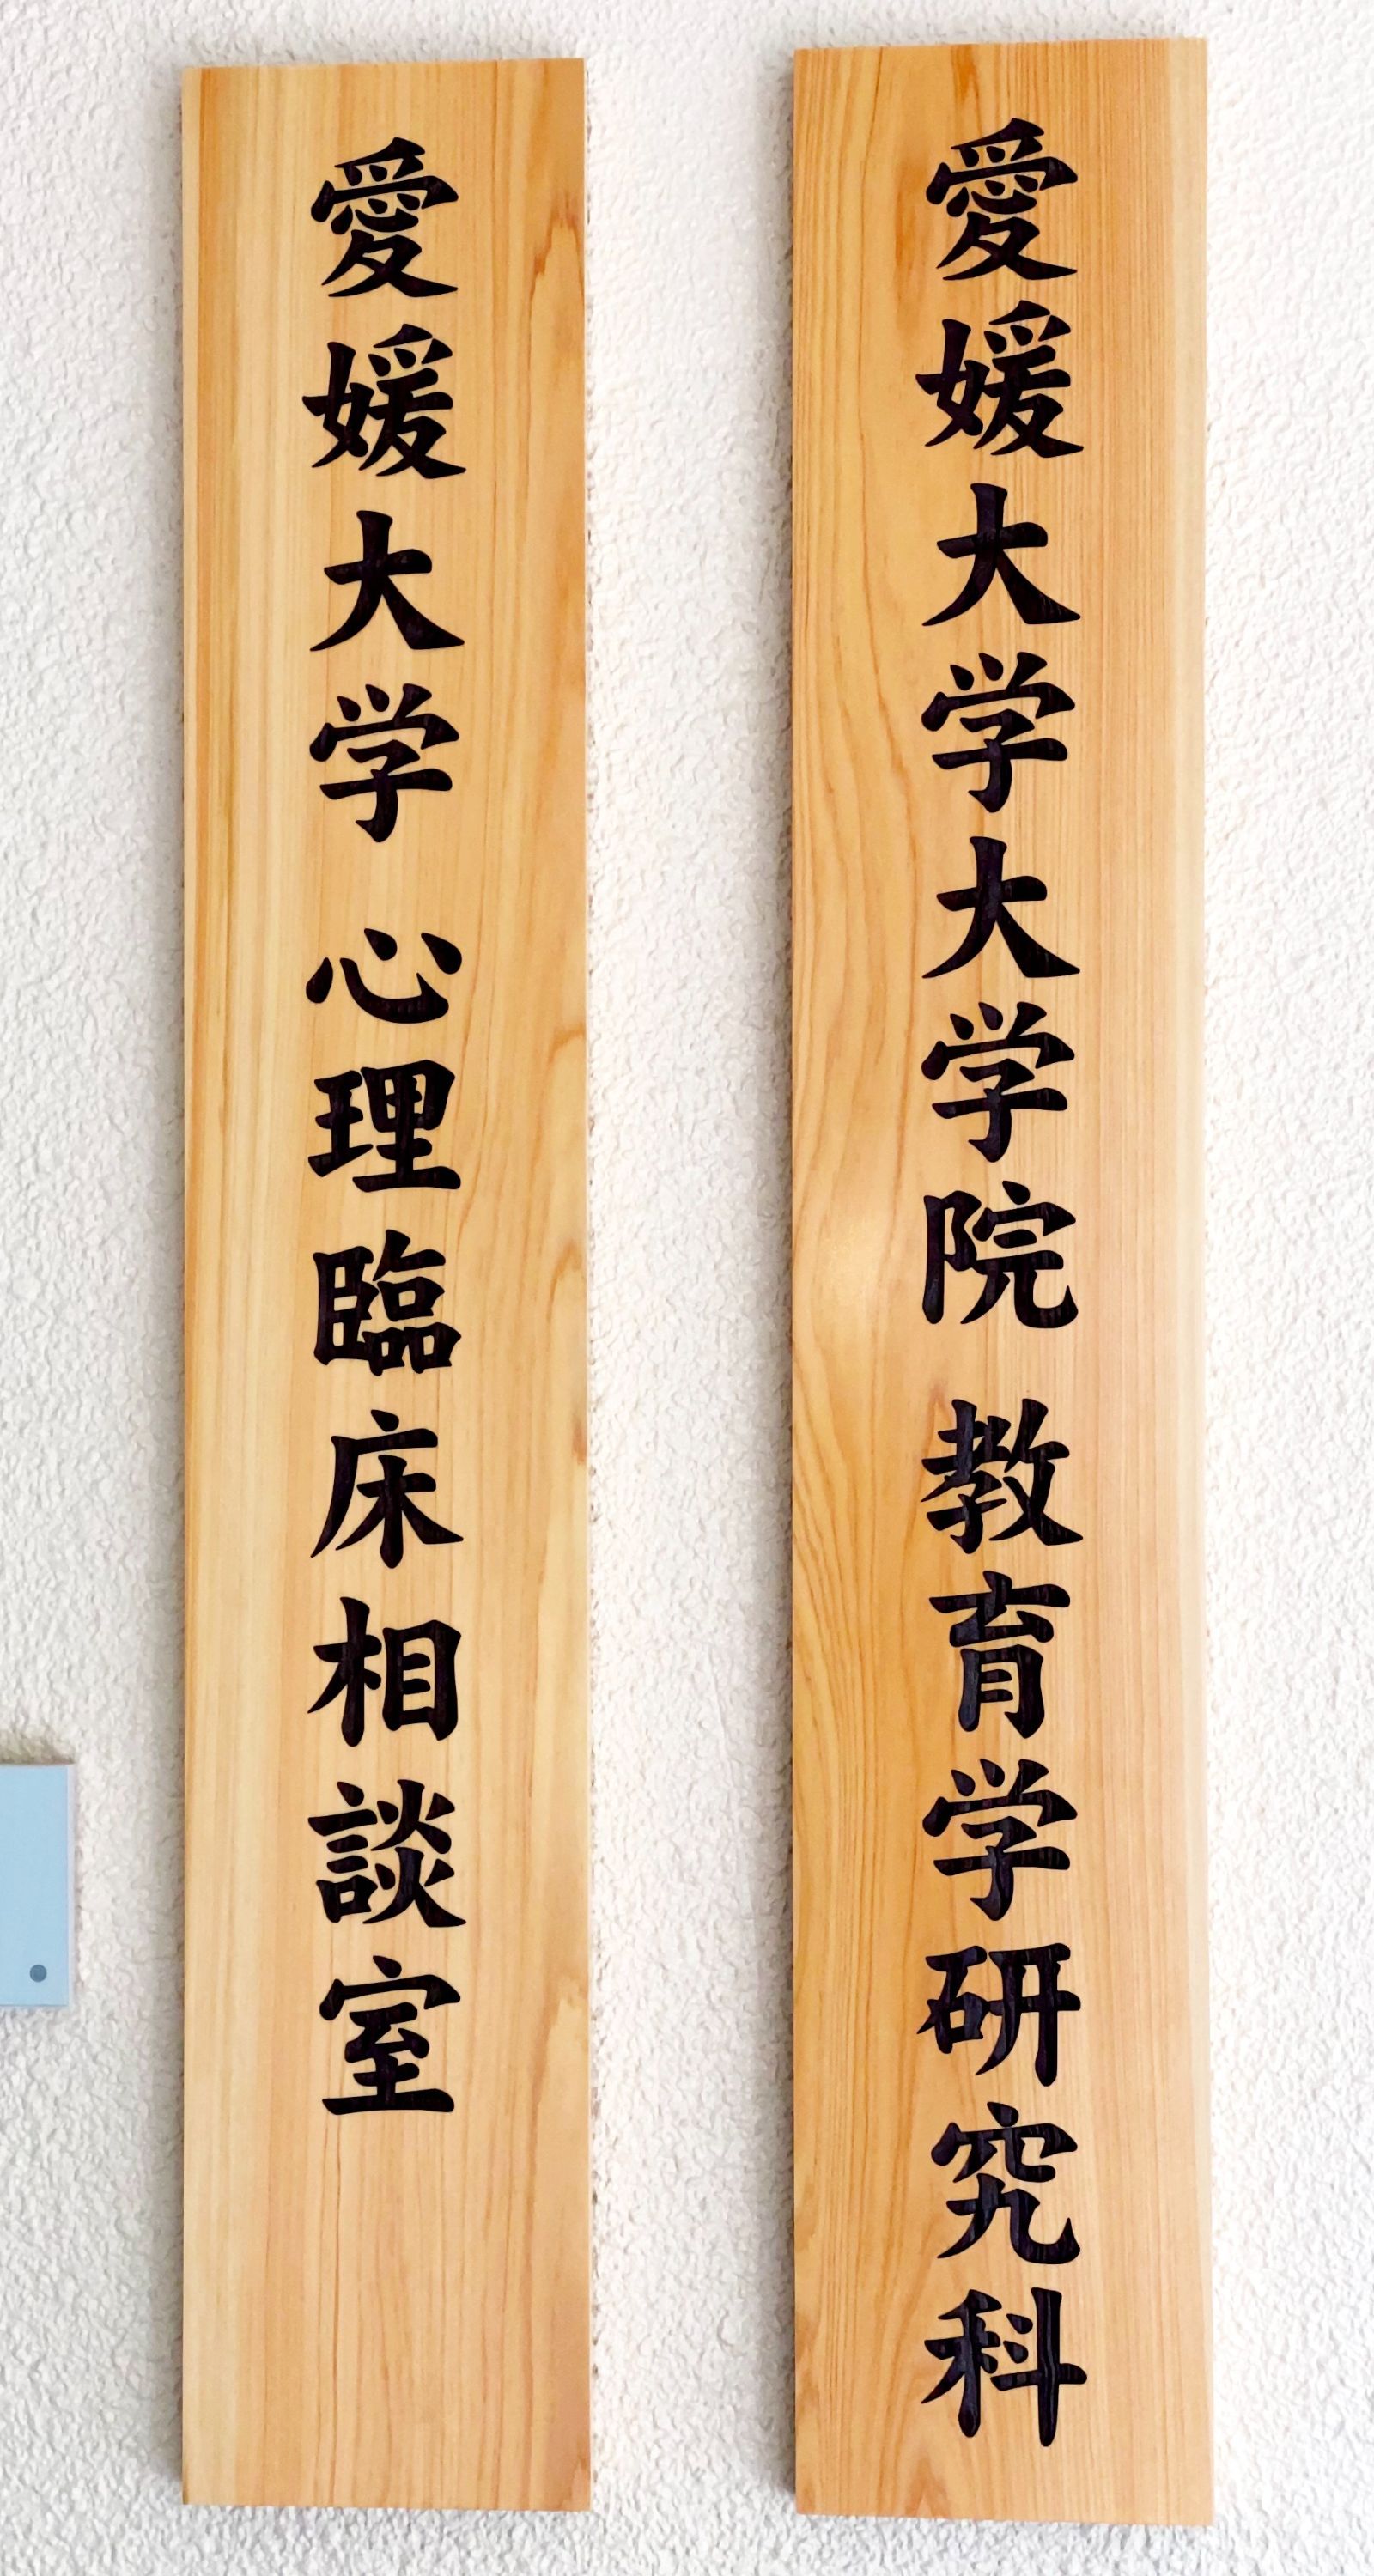 愛媛大学大学院 教育学研究科
愛媛大学 心理臨床相談室